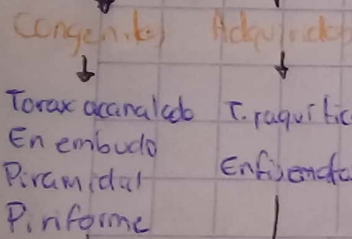 Congenitos
Adquiridos
Torax acanalado
En embudo
Piramidal
Piriforme
T. raquitic
Enfisemato